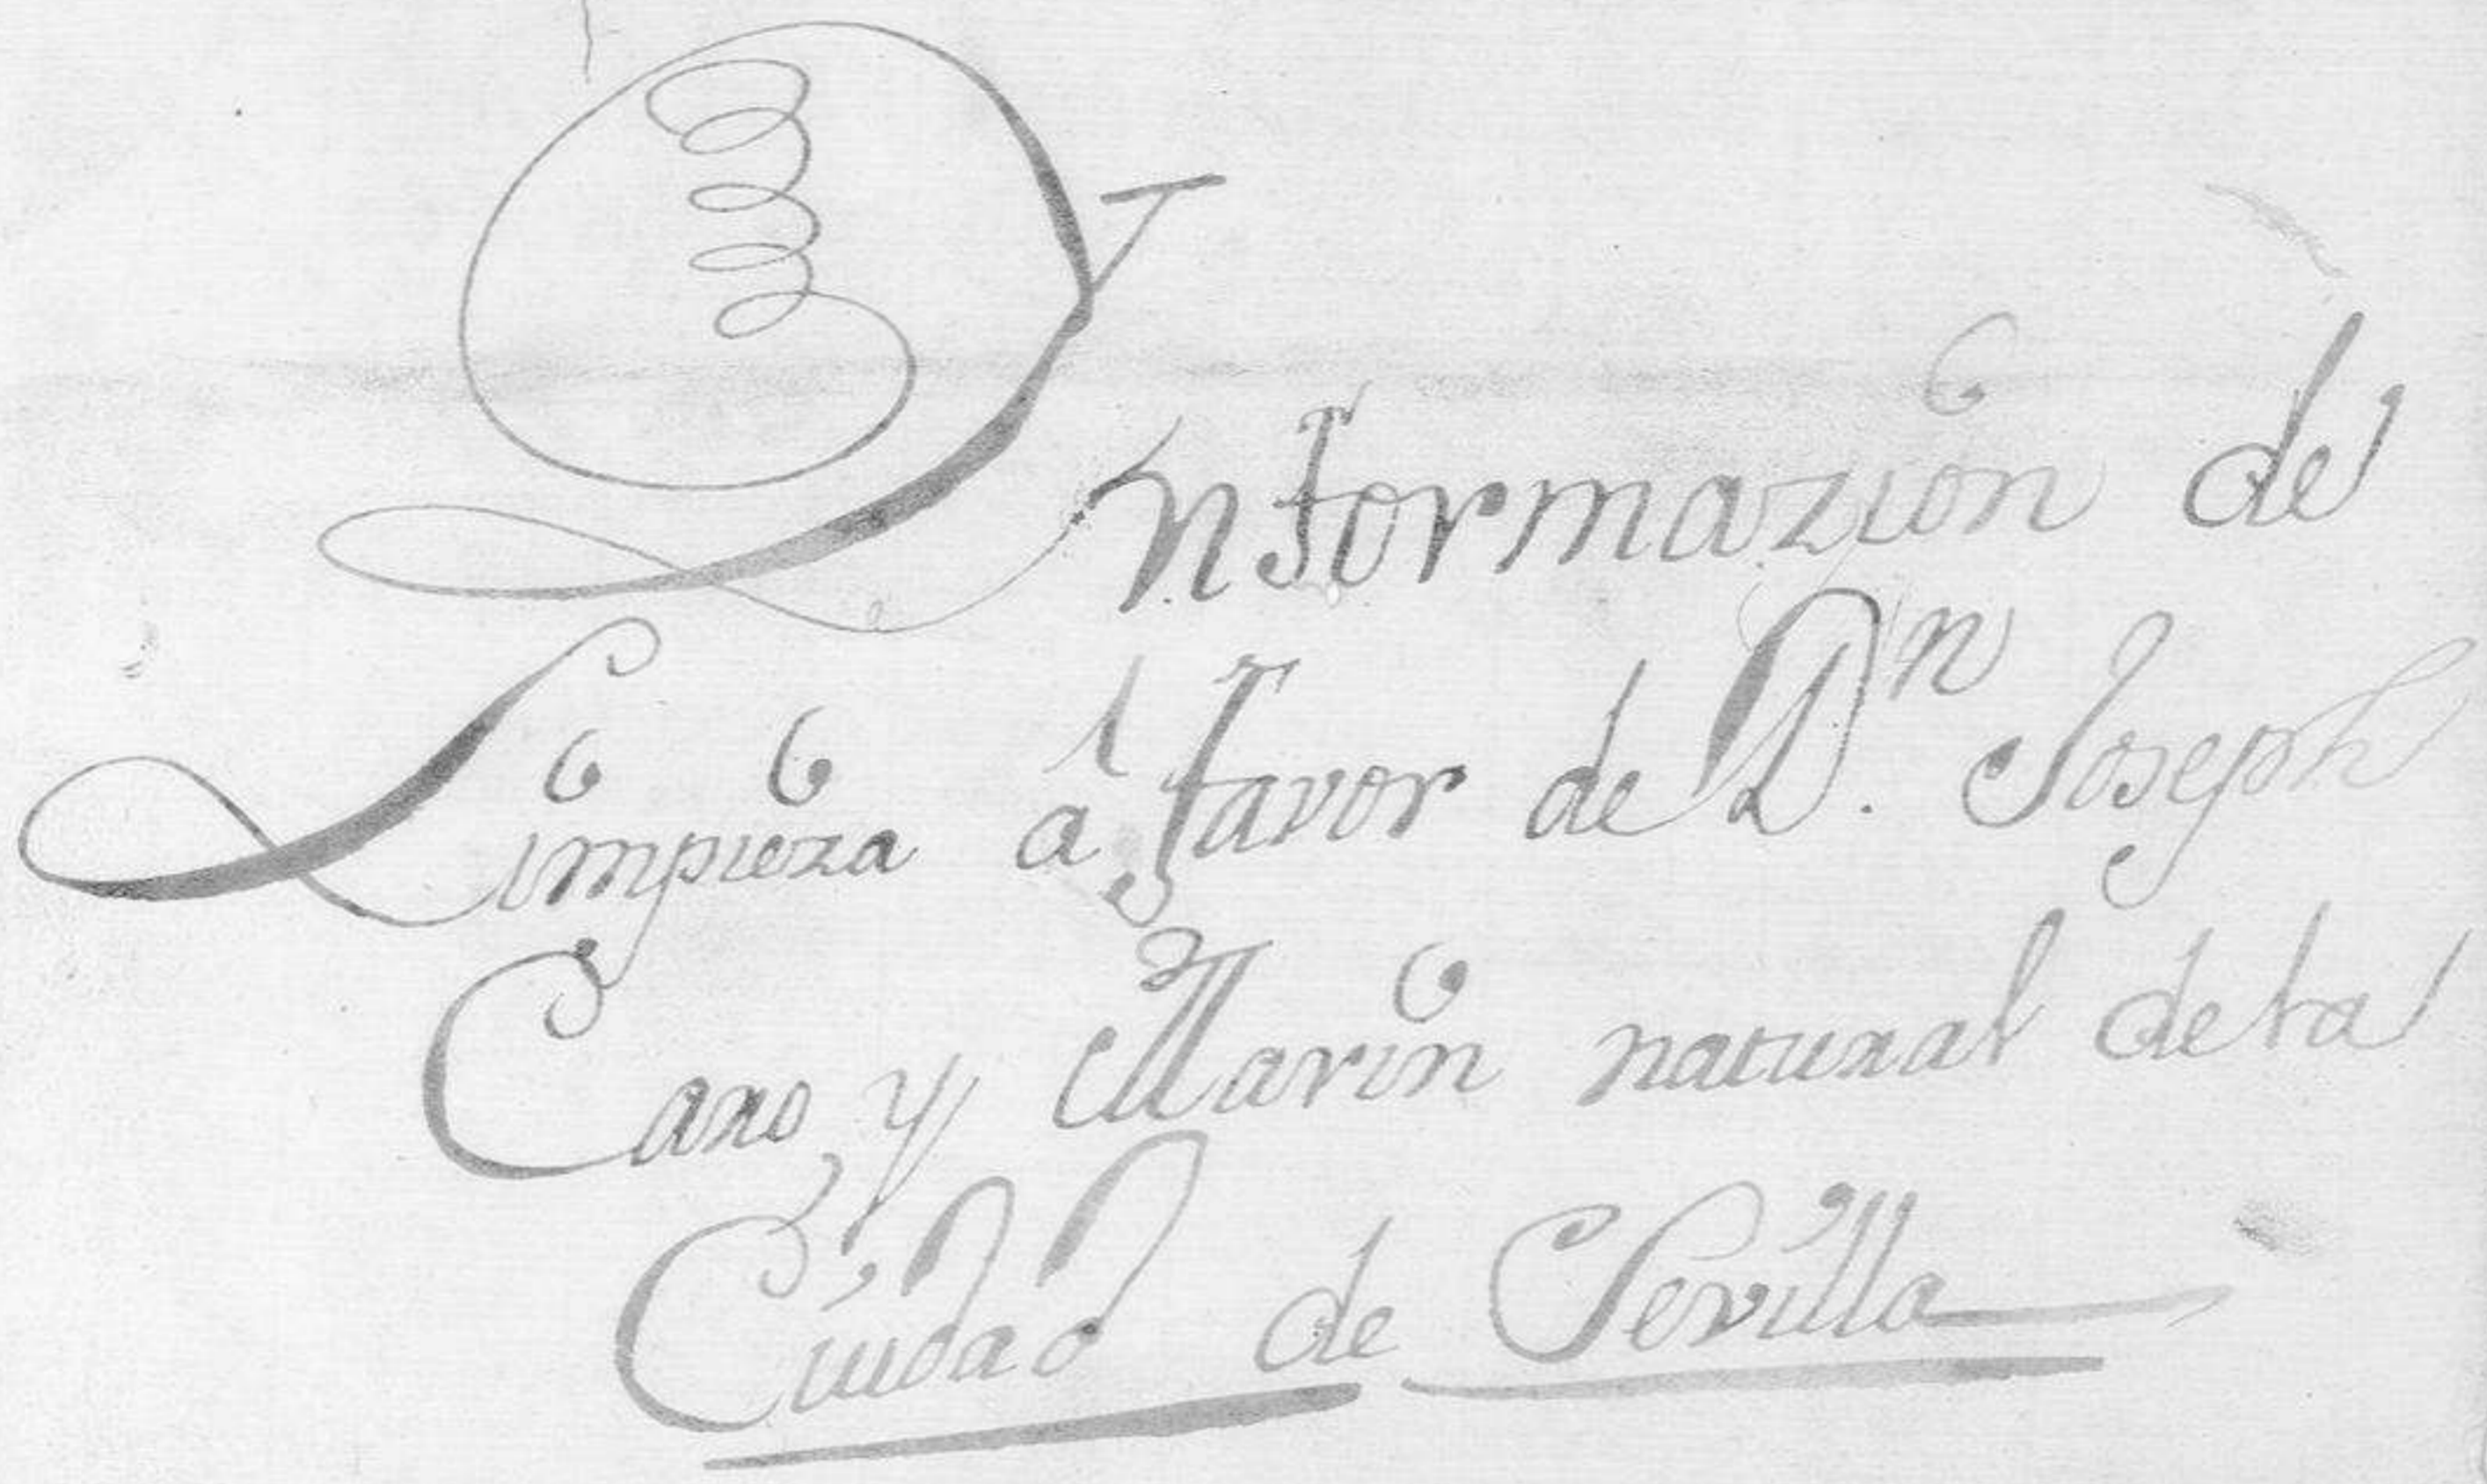 Ynformazion de
Limpieza á favor de Dⁿ. Joseph
Caro y Marin natural de la
Ciudad de Sevilla